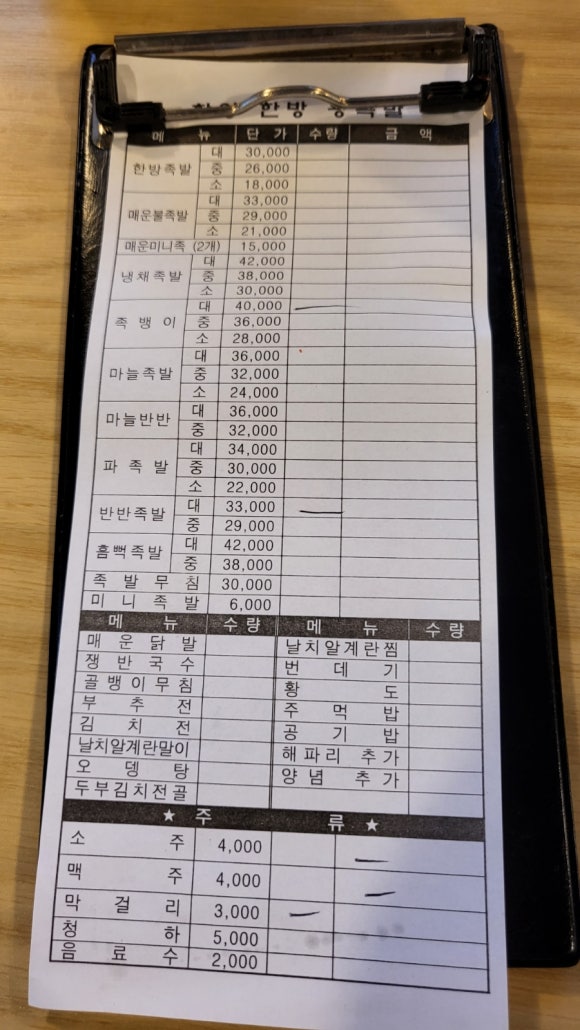 한방
메 뉴 단 가 수량 금 액
한방족발 대 30,000
중 26,000
소 18,000
매운불족발 대 33,000
중 29,000
소 21,000
매운미니족 (2개) 15,000
냉채족발 대 42,000
중 38,000
소 30,000
족 뱅 이 대 40,000
중 36,000
소 28,000
마늘족발 대 36,000
중 32,000
소 24,000
마늘반반 대 36,000
중 32,000
파 족 발 대 34,000
중 30,000
소 22,000
반반족발 대 33,000
중 29,000
흠뻑족발 대 42,000
중 38,000
족 발 무 침 30,000
미 니 족 발 6,000
메 뉴 수 량 메 뉴 수 량
매 운 닭 발 날치알계란찜
쟁 반 국 수 번 데 기
골뱅이무침 황 도
부 추 전 주 먹 밥
김 치 전 공 기 밥
날치알계란말이 해파리 추가
오 뎅 탕 양념 추가
두부김치전골
★ 주 류 ★
소 주 4,000
맥 주 4,000
막 걸 리 3,000
청 하 5,000
음 료 수 2,000